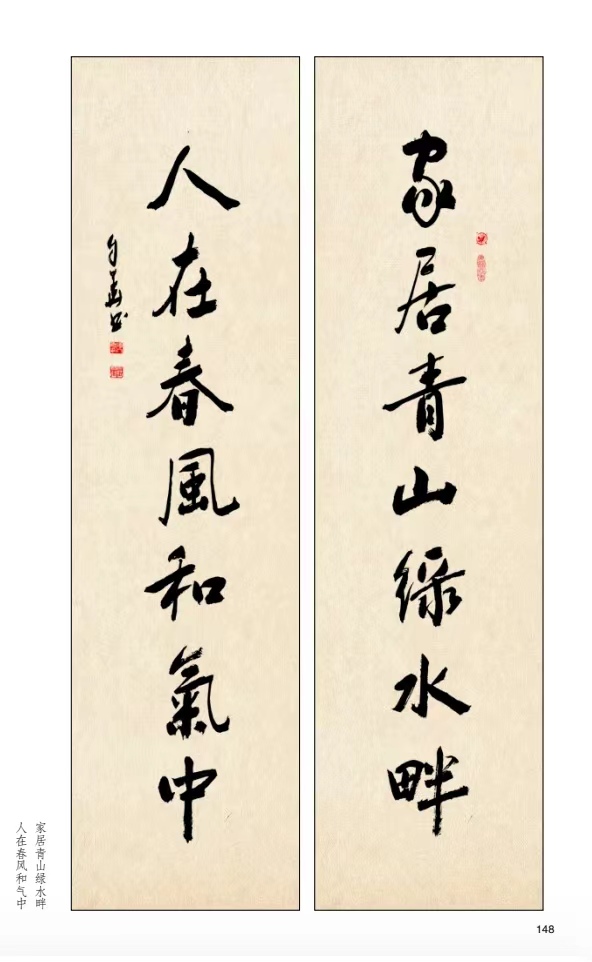 家居青山緑水畔
人在春風和氣中
家居青山绿水畔
人在春风和气中
148